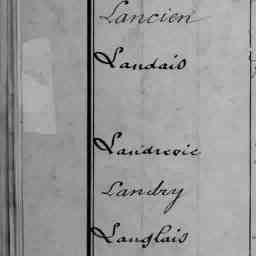 Lancien
Landais
Landrevie
Landry
Langlais